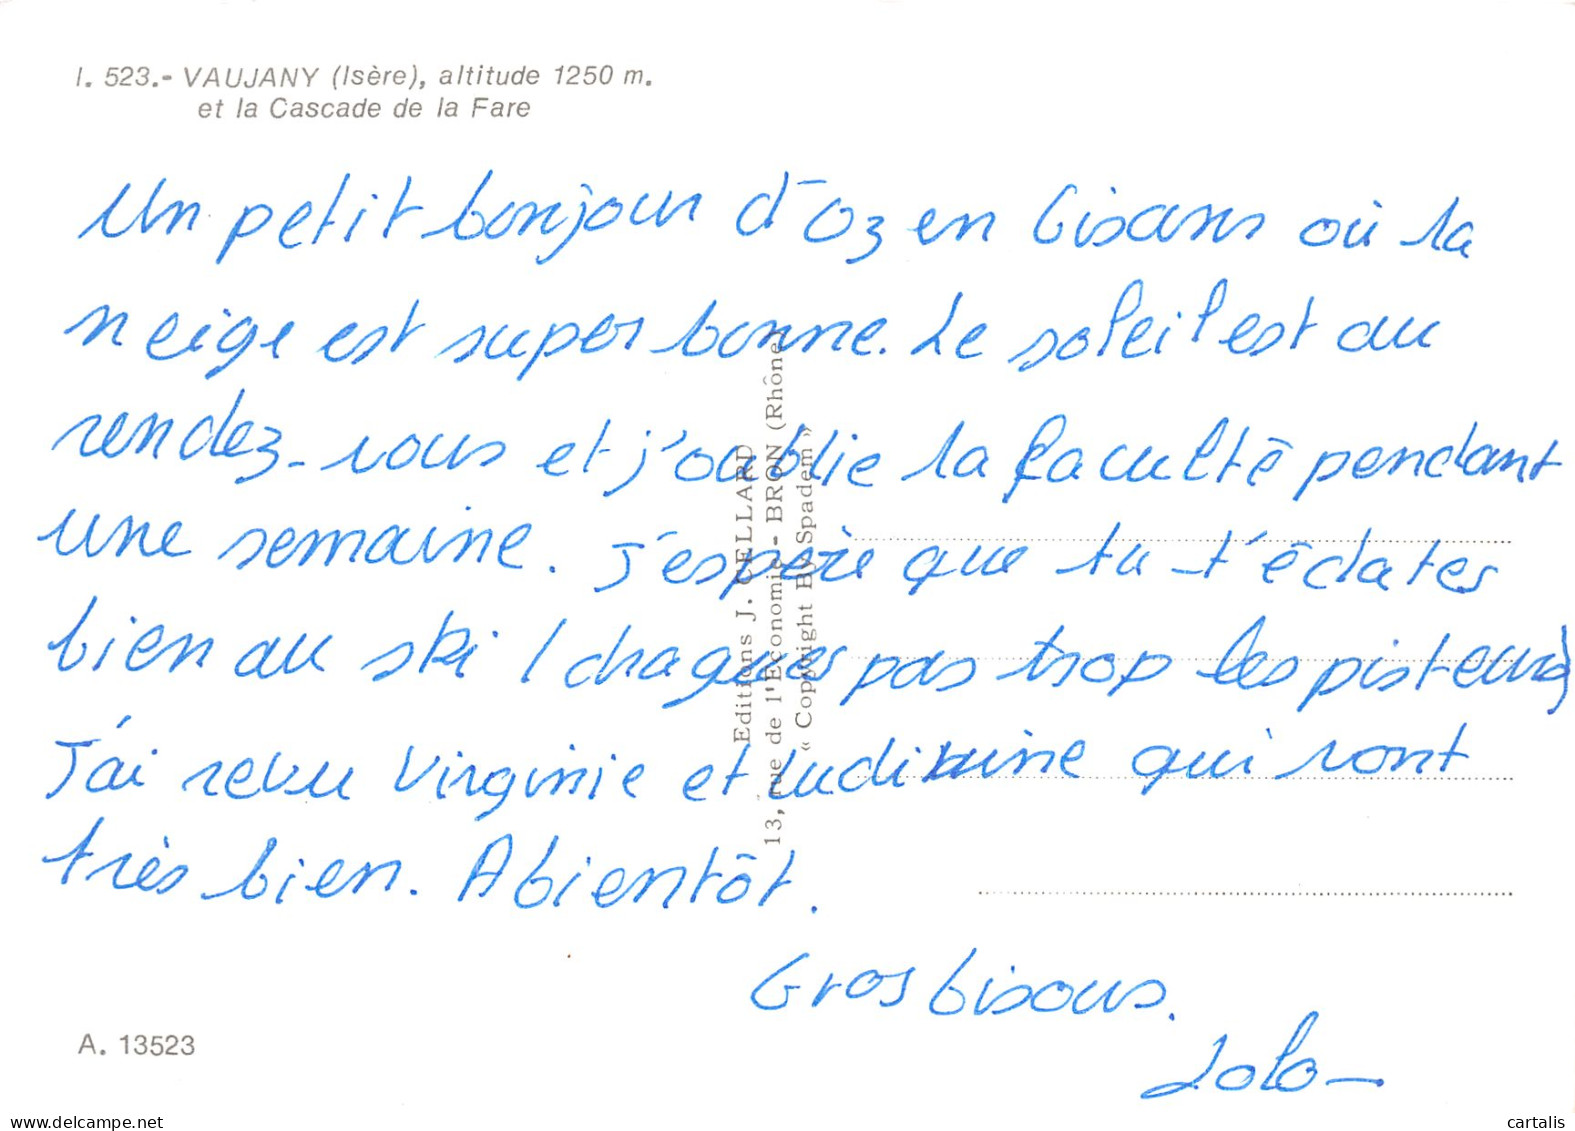 I. 523.- VAUJANY (Isère), altitude 1250 m.
et la Cascade de la Fare
Un petit bonjour d'Oz en Oisans où la
neige est super bonne. Le soleil est au
rendez-vous et j'oublie la faculté pendant
une semaine. J'espère que tu t'éclates
bien au ski ! dragues pas trop les pisteurs
J'ai revu Virginie et Ludivine qui vont
très bien. A bientôt.
Gros bisous.
Lolo
Editions J. CELLARD
13, rue de l'Economie - BRON (Rhône)
« Copyright By Spadem »
A. 13523
delcampe.net
cartalis